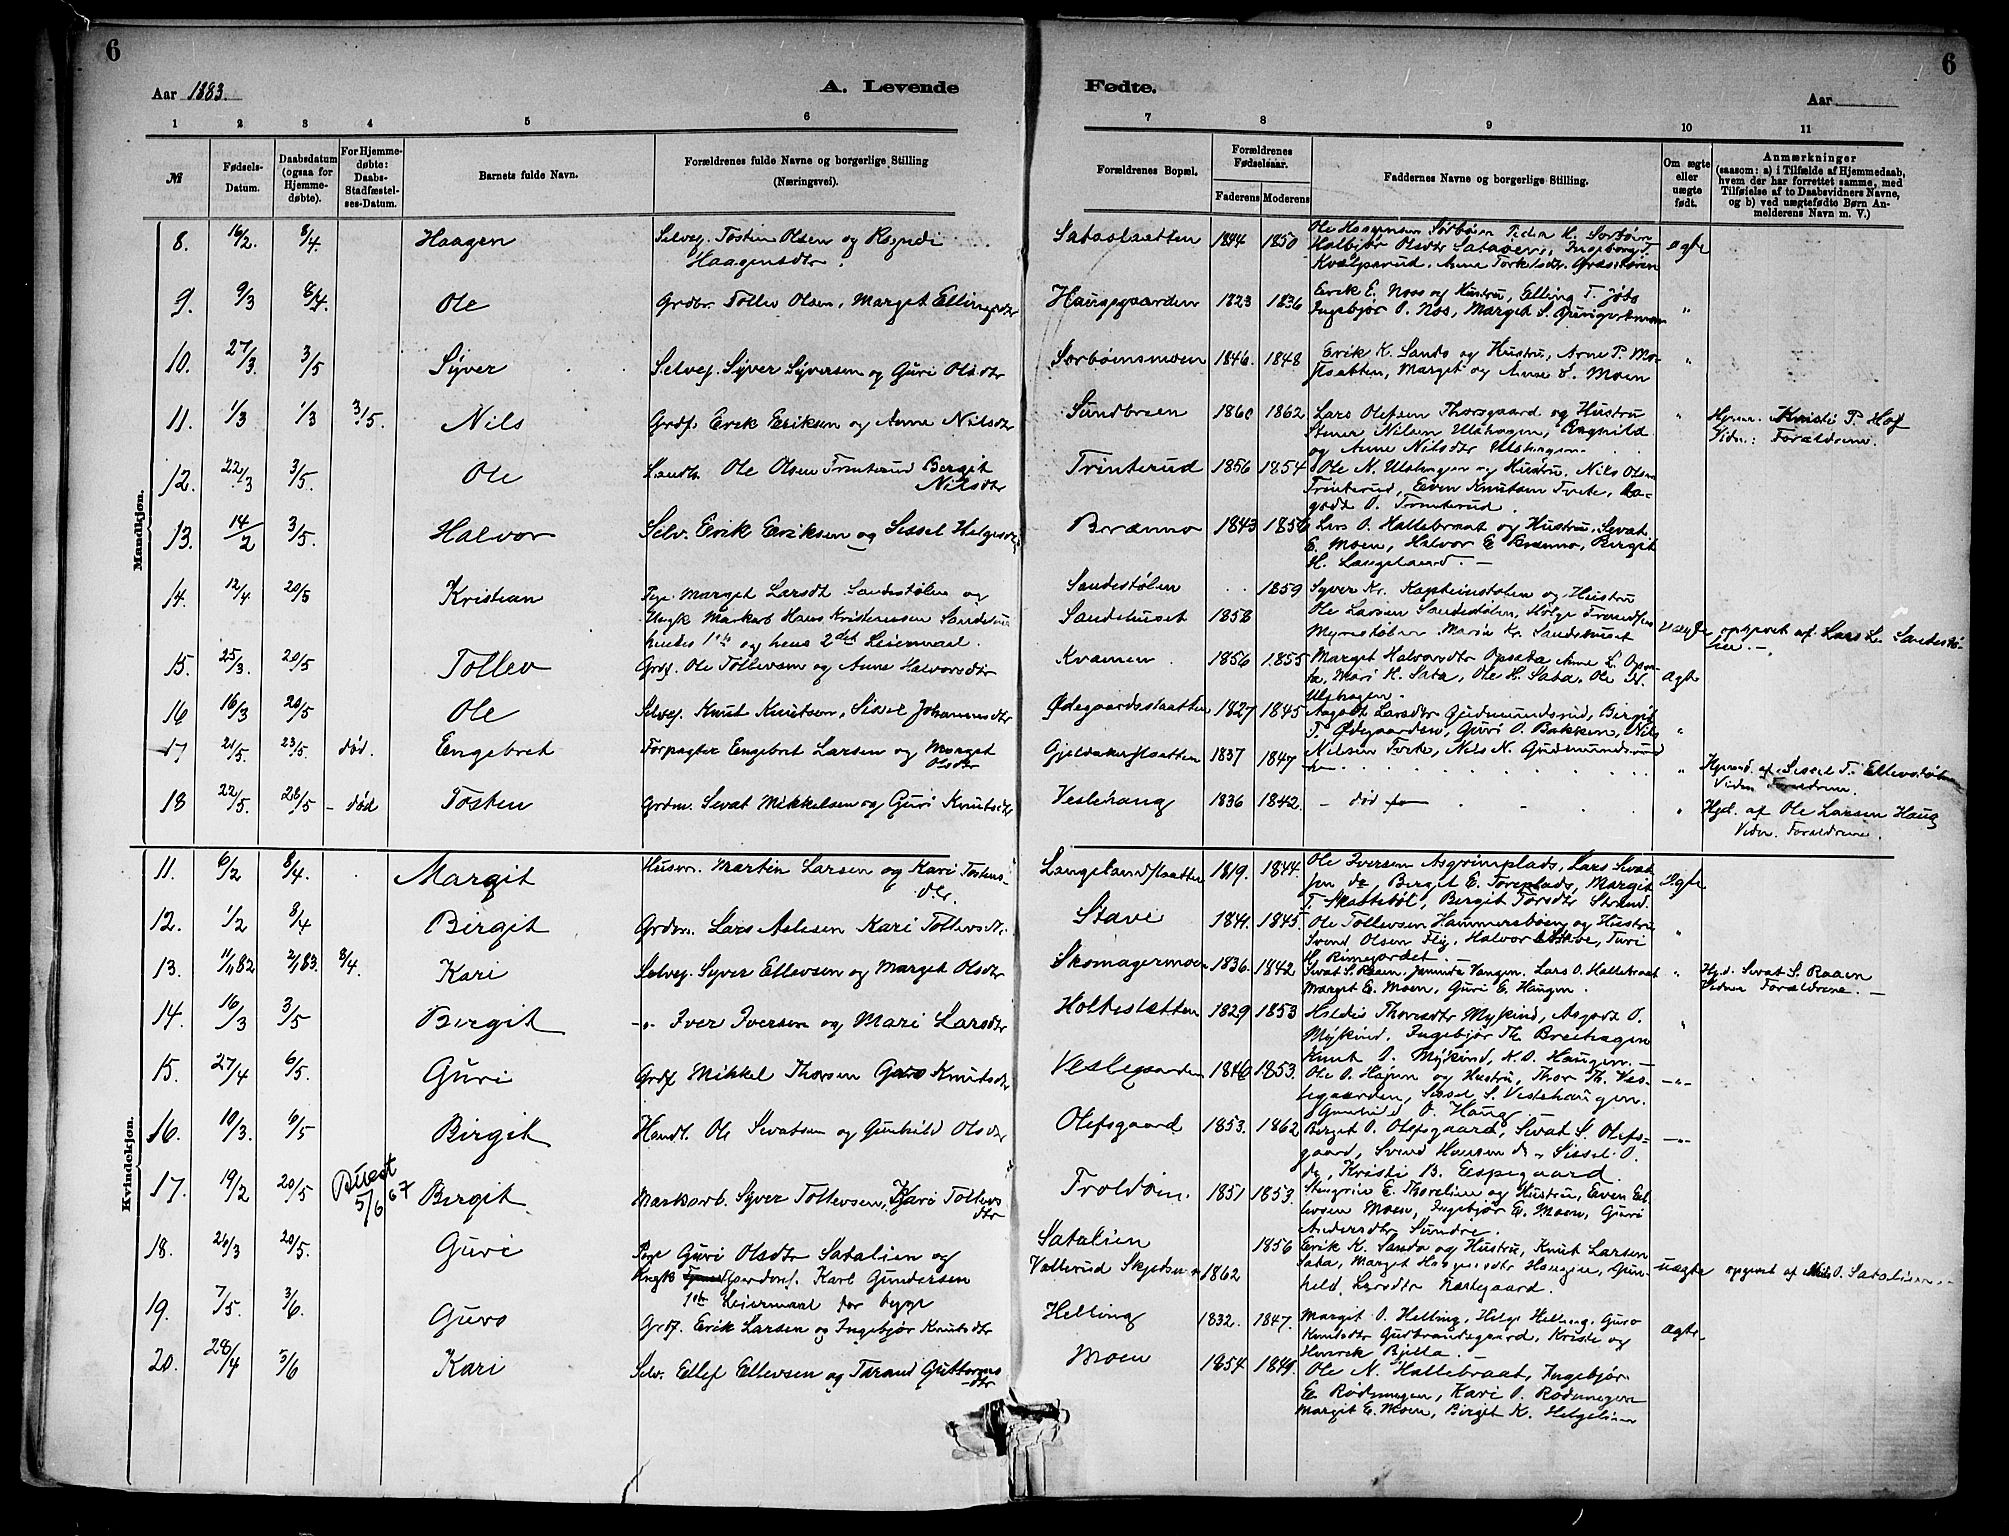 6
6
Aar 1883.
A. Levende
Fødte.
Aar
1 2 3 4 5 6 7 8 9 10 11
№
Fødsels-Datum.
Daabsdatum (ogsaa for Hjemme-døbte).
For Hjemme-døbte: Daabs-Stadfæstel-ses-Datum.
Barnets fulde Navn.
Forældrenes fulde Navne og borgerlige Stilling (Næringsvei).
Forældrenes Bopæl.
Forældrenes Fødselsaar.
Faderens Moderens
Faddernes Navne og borgerlige Stilling.
Om ægte eller uægte født.
Anmærkninger
(saasom: a) i Tilfælde af Hjemmedaab,
hvem der har forrettet samme, med
Tilføielse af to Daabsvidners Navne,
og b) ved uægtefødte Børn An-
melderens Navn m. V.)
Mandkjøn.
8. 16/2. 8/4. Haagen Selvej. Tosten Olsen og Ragndi Haagensdtr. 1844 1850 ægte
9. 9/3 8/4. Ole Grdbr. Tollev Olsen, Marget Ellingsdtr Haugsgaarden 1823 1836 Erik E. Noss og Hustru, Elling T. "
10. 27/3. 3/5 Syver Selvej. Syver Syversen og Guri Olsdtr Sorbøensmoen 1846. 1848 Erik K. Sando og Hustru, Arne P. Mo- Marget og Anne S. Moen "
11. 1/3 1/3 3/5. Nils Grdf. Erik Eriksen og Anne Nilsdtr Sundbreen 1860 1862 Lars Olefsen Thorsgaard og Hustru Stener Nilsen Ulshagen, Ragnild og Anne Nilsdtr Ulshagen. " Hjemm. Kristi P. Hof Vidn.: Forældrene.
12. 22/3 3/5. Ole Ole Olsen Trinterud Bergit Nilsdtr Trinterud 1856 1854 Ole N. Ulshagen og Hustru, Nils Olsen Trinterud, Even Knutsen Tvete, Aagodt O. Trinterud.
13. 14/2 3/5. Halvor Selv. Erik Eriksen og Sissel Helgesdtr Brænno 1843 1856 Lars O. Hallebraat og Hustru, Sevat E. Moen, Halvor E Brænno, Birgit H. Langeland. —
14. 12/4 20/5 Kristian Pige Marget Larsdt. Sandestølen og Ungk. Markarb Hans Kristensen hendes 1ste og hans 2det Leiermaal. Sandestølen Sandehuset 1858 1859 Syver Kr. Kapteinstolen og Hustru Ole Larsen Sandestølen, Helge Marie Kr. Sandehuset uægte opgivet af Lars L. Sandestølen. —
15. 25/3. 20/5 Tollev Grdf. Ole Tollevsen og Anne Halvorsdtr Kvamen 1856 1855 Marget Halvorsdtr Opsata Anne L. Opsata, Mari H. Sata, Ole H. Sata, Ole N. Ulshagen. ægte
16 16/3 20/5 Ole Selvej. Knut Knutsen, Sissel Johannesdtr Ødegaardsslaatten 1827 1845 Aagodt Larsdtr Gudmundsrud, Birgit T. Ødegaarden, Guri O. Bakken, Nils Nilsen Tvete, Nils N. Gudmundsrud "
17 21/5. 23/5. død. Engebret Forpagter Engebret Larsen og Marget Olsdtr Gjeldaker 1837 1847 " Hjemmd. af Sissel T. Ellevstølen Vidner Forældrene.
18 22/5. 28/5 – død Tosten Grdm. Sevat Mikkelsen og Guri Knutsdtr Veslehaug 1836 1842. – død " Hjd. af Ole Larsen Haug Vidn. Forældrene.
Kvindekjøn.
11. 6/2 8/4. Margit Husm. Martin Larsen og Kari Tostensdtr. Langeland 1819. 1844. Ole Iversen Asgrimplads, Lars Sevatsen do, Berget E. Toreplads, Margit T. Skattebøl, Birgit Torsdtr Strand. Ægte
12. 1/2 8/4 Birgit Grdbr. Lars Aslesen Kari Tollevsdtr. Stave 1841. 1845. Ole Tollevsen Hammersbøen og Hustru Svend Olsen Flig, Halvor Stave, Turi G. Rimegardet. — "
13. 11/1182 2/183. 8/4. Kari Selvej. Syver Ellevsen og Marget Olsdtr Skomagermoen 1836. 1842 Sevat S. Raaen, Vangen. Lars O. Hallebraat Marget E. Moen, Guri E. Haugen. " Hjd. Sevat S. Raaen Vidner Forældrene. —
14. 16/3 3/5 Birgit -"- Iver Iversen og Mari Larsdtr Holtestætten 1829 1853 Hildis Thorsdtr Mykind, Asgodt O. Mykind, Ingebjør Th. Breihagen Knut O. Mykind, N. O. Haugen. — "
15. 27/4 6/5. Guri Grdf Mikkel Thorsen Guro Knutsdtr Veslegaarden 1846 1853. Ole O. Hajem og Hustru, Thor Th. Veslegaarden, Sissel S. Veslehaugen. Gunhild O. Haug. -"-
16. 10/3. 6/5 Birgit Handl. Ole Sevatsen og Gunhild Olsdtr Olefsgaard 1853. 1862 Berget O. Olefsgaard, Sevat S. Olefsgaard, Svend Hansen do, Sissel O. do, Kristi B. Espegaard. -"-
17. 19/2 20/5 Birgit Markarb. Syver Tollevsen, Kari Tollevsdtr Troldøin. 1851 1853. Stengrim E. Thoreline og Hustru, Even Ellevsen Moen, Ingebjør E. Moen, Guri Andersdtr Sundre.
5/6 67
18. 20/3 20/5. Guri Pige Guri Olsdtr Satalien og Karl Gundersen 1ste Leiermaal for begge Satalien 1862 1856 Erik K. Sando og Hustru, Knut Larsen Sata, Marget Haagensdtr Haugen, Gunhild Larsdtr Næstegaard. uægte opgivet af Nils O. Satalien. —
19. 7/5. 3/6. Guro Grdf. Erik Larsen og Ingebjør Knutsdtr Helling 1832. 1847. Margit O. Helling, Helge Helling, Guro Knutsdtr Gudbrandsgaard, Kristi og Henrik Bjella. ægte
20. 28/4 3/6 Kari Selv. Ellef Ellevsen og Tarand Guttormsdtr Moen 1854 1849. Ole N. Hallebraat, Ingebjør E. Rødungen, Kari O. Rødungen Margit E. Moen, Birgit K. Helgelien